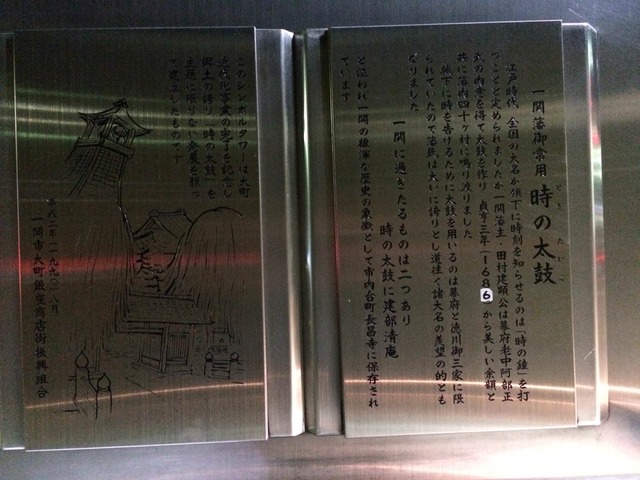 一関藩御常用
時の太鼓
とき たいこ
江戸時代、全国の大名が領下に時刻を知らせるのは「時の鐘」を打
つことと定められましたが一関藩主・田村建顕公は幕府老中阿部正
武の内意を得て太鼓を作り 貞亨三年(1686)から美しい余韻と
共に藩内四十ヶ村に鳴り渡りました
城下に時を告げるために太鼓を用いるのは幕府と徳川御三家に限
られていたので藩民は大いに誇りとし道往く諸大名の羨望の的とも
なりました
一関に過ぎたるものは二つあり
時の太鼓に建部清庵
と謳われ一関の雄渾な歴史の象徴として市内台町長昌寺に保存され
ています
このシンボルタワーは大町
近代化事業の完了を記念し
郷土の誇り「時の太鼓」を
主題に限りない発展を願っ
て建立したものです
平成二年(一九九〇)八月
一関市大町銀座商店街振興組合